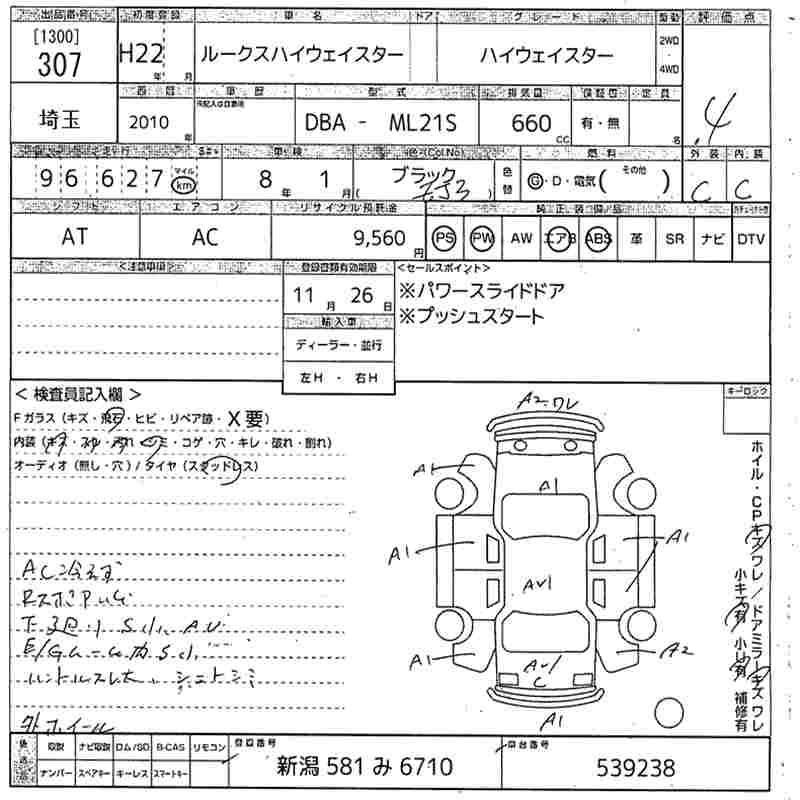 出品番号 初度登録 車名 ドア グレード 駆動 評価点
[1300] 307 H22 年 月 ルークスハイウェイスター ハイウェイスター 2WD ・ 4WD 4
埼玉 西暦 車歴 型式 排気量 保証書 定員
2010 年 未記入は自家用 DBA - ML21S 660 CC 有・無 名
走行 車検 色(Col.No) 燃料 外装 内装
96,627 マイル km 8 年 1 月 ブラック 色替 G・D・電気( その他 ) C C
シフト エアコン リサイクル預託金 純正装備品
AT AC 9,560 円 PS PW AW エアB ABS 革 SR ナビ DTV
<注意事項> 登録書類有効期限 <セールスポイント>
11 月 26 日 ※パワースライドドア
輸入車 ※プッシュスタート
ディーラー・並行
左H ・ 右H
<検査員記入欄> キーロック
Fガラス(キズ・飛石・ヒビ・リペア跡・X要)
内装(キズ・スレ・汚れ・シミ・コゲ・穴・キレ・破れ・割れ)
オーディオ(無し・穴)/タイヤ(スタッドレス)
A2.ワレ
A1 A1
A1 A1
AU1
A1 A2
AU1
C
A1
ホイル・CPキズワレ/ドアミラーキズワレ
小キズ有 小凹有 補修有
AC冷えず
下廻り S小、AU
ハンドルスレ大
外ホイール
後送品 取説 ナビ取説 ロム/SD B-CAS リモコン 登録番号 車台番号
ナンバー スペアキー キーレス スマートキー 新潟 581 み 6710 539238